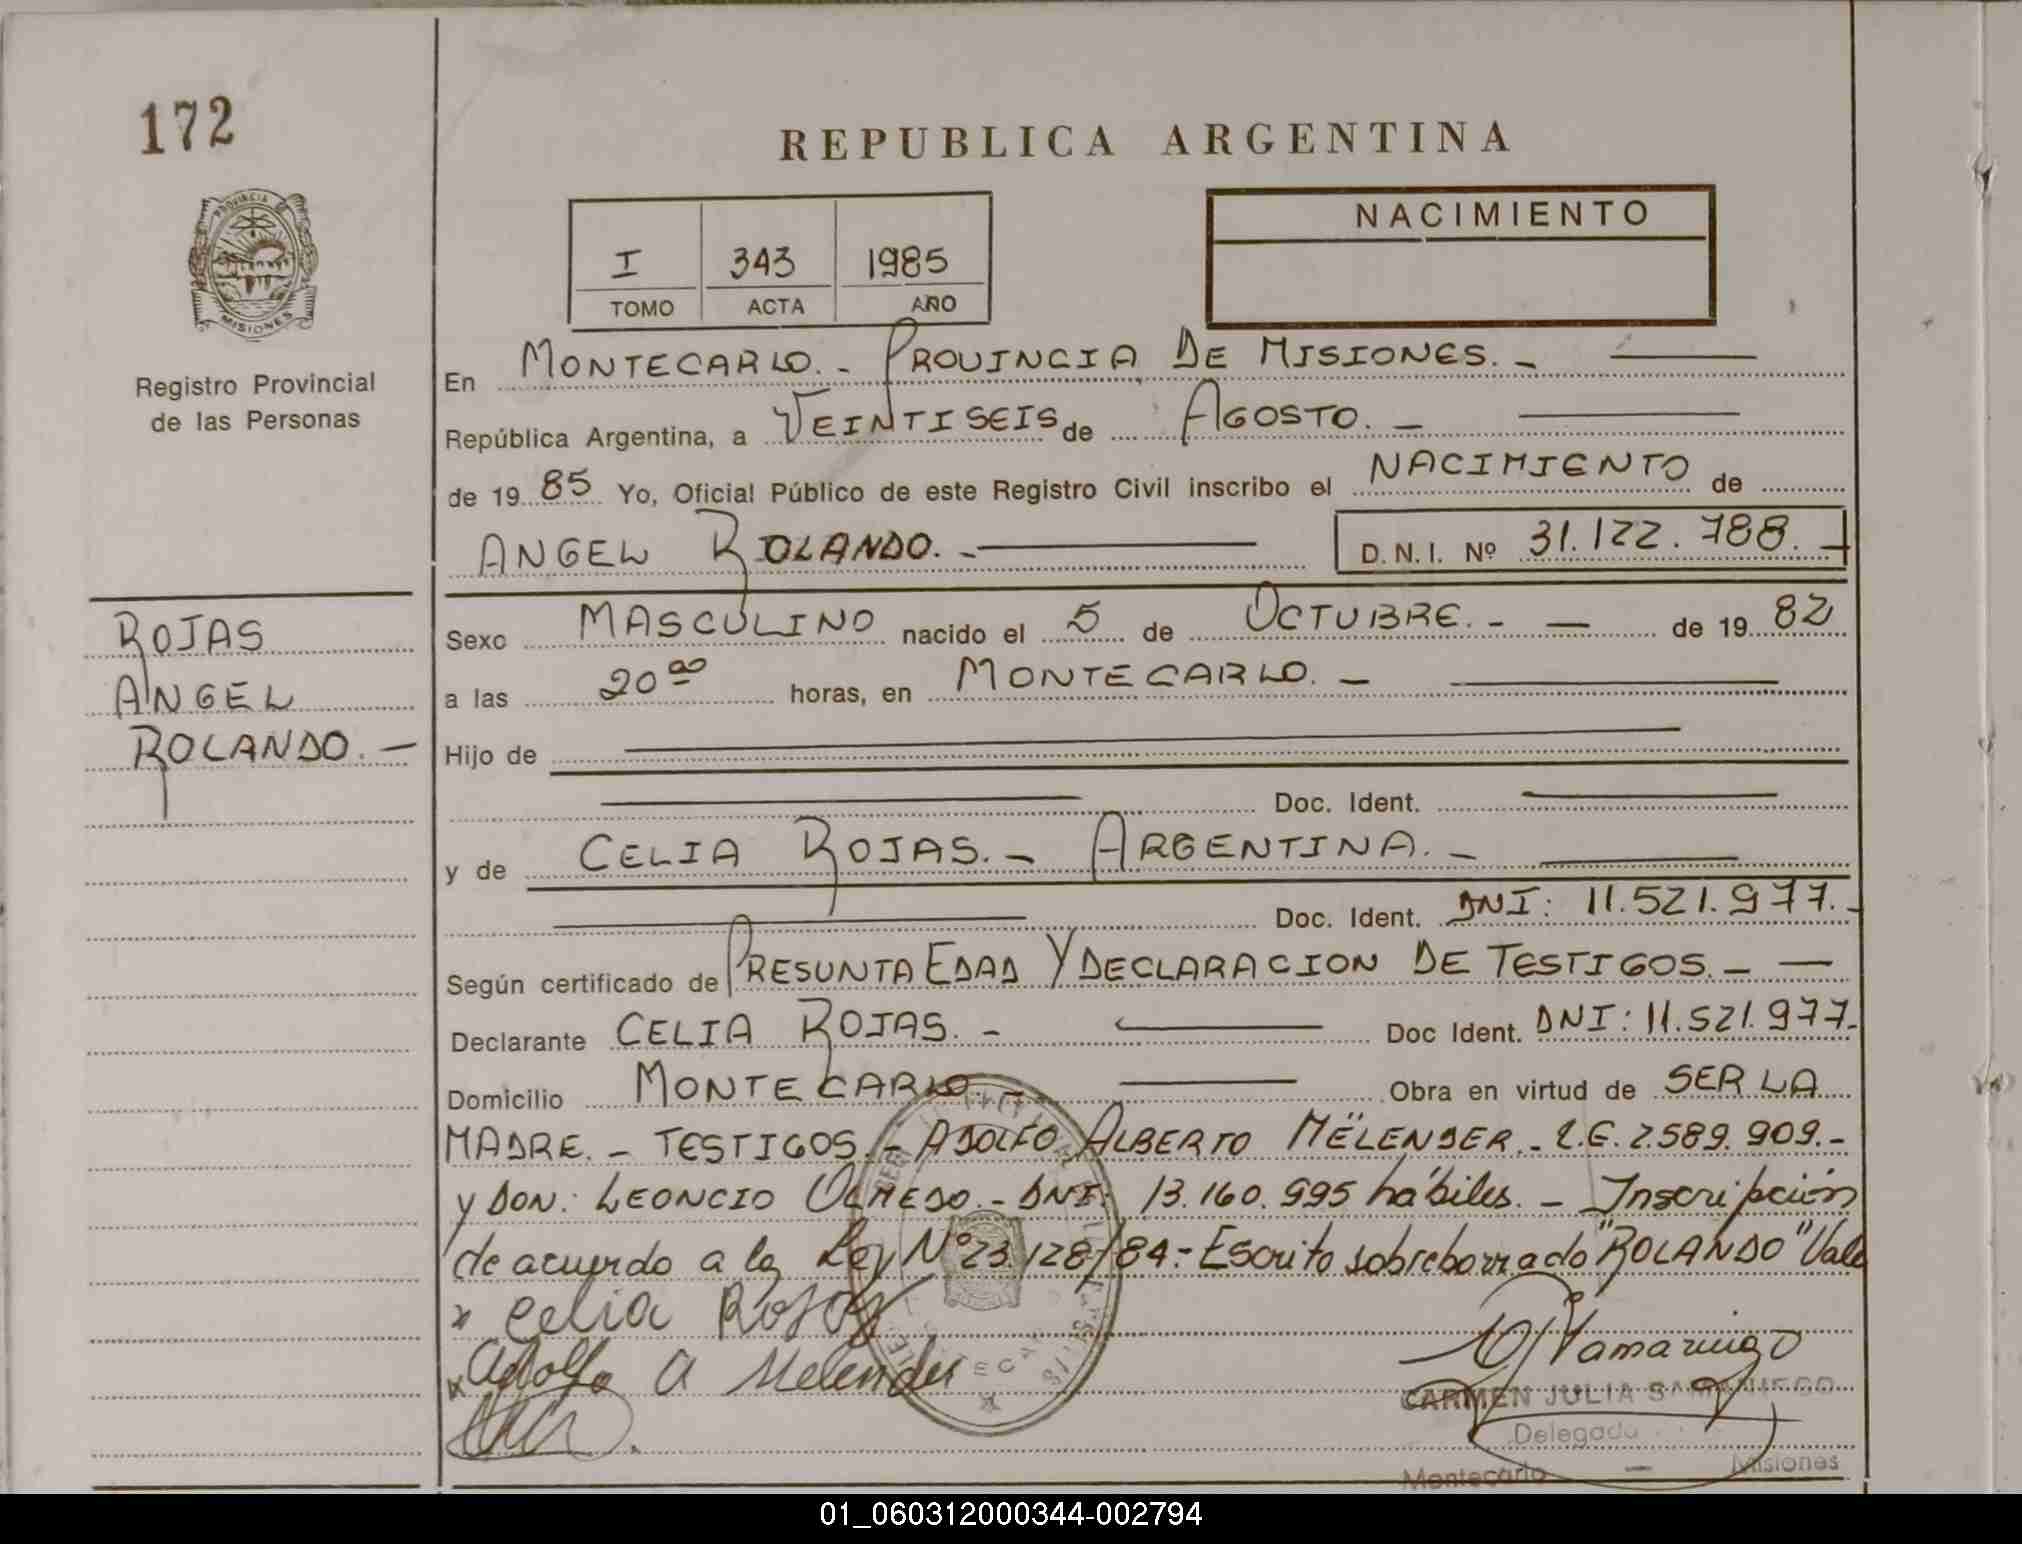 172
REPUBLICA ARGENTINA
PROVINCIA DE
MISIONES
Registro Provincial
de las Personas
I 343 1985
TOMO ACTA AÑO
NACIMIENTO
En MONTECARLO. - PROVINCIA DE MISIONES. -
República Argentina, a VEINTISEIS de AGOSTO. -
de 19 85 Yo, Oficial Público de este Registro Civil inscribo el NACIMIENTO de
ANGEL ROLANDO. - D.N.I. Nº 31.122.788. -
ROJAS
ANGEL
ROLANDO. -
Sexo MASCULINO nacido el 5 de OCTUBRE. - - de 19 82
a las 20ºº horas, en MONTECARLO. -
Hijo de
Doc. Ident.
y de CELIA ROJAS. - ARGENTINA. -
Doc. Ident. DNI: 11.521.977. -
Según certificado de PRESUNTA EDAD Y DECLARACION DE TESTIGOS. - -
Declarante CELIA ROJAS. - Doc Ident. DNI: 11.521.977. -
Domicilio MONTECARLO. - Obra en virtud de SER LA
MADRE. - TESTIGOS. - ADOLFO ALBERTO MËLENDER. - L.E. 7.589.909. -
y DON: LEONCIO OLMEDO. - DNI: 13.160.995 hábiles. - Inscripción
de acuerdo a la Ley Nº 23.128/84 - Escrito sobreborrado "ROLANDO" Vale
x Celia Rojas
x Adolfo A Melender
CARMEN JULIA SAMANIEGO
Delegada
Montecarlo - Misiones
01_060312000344-002794